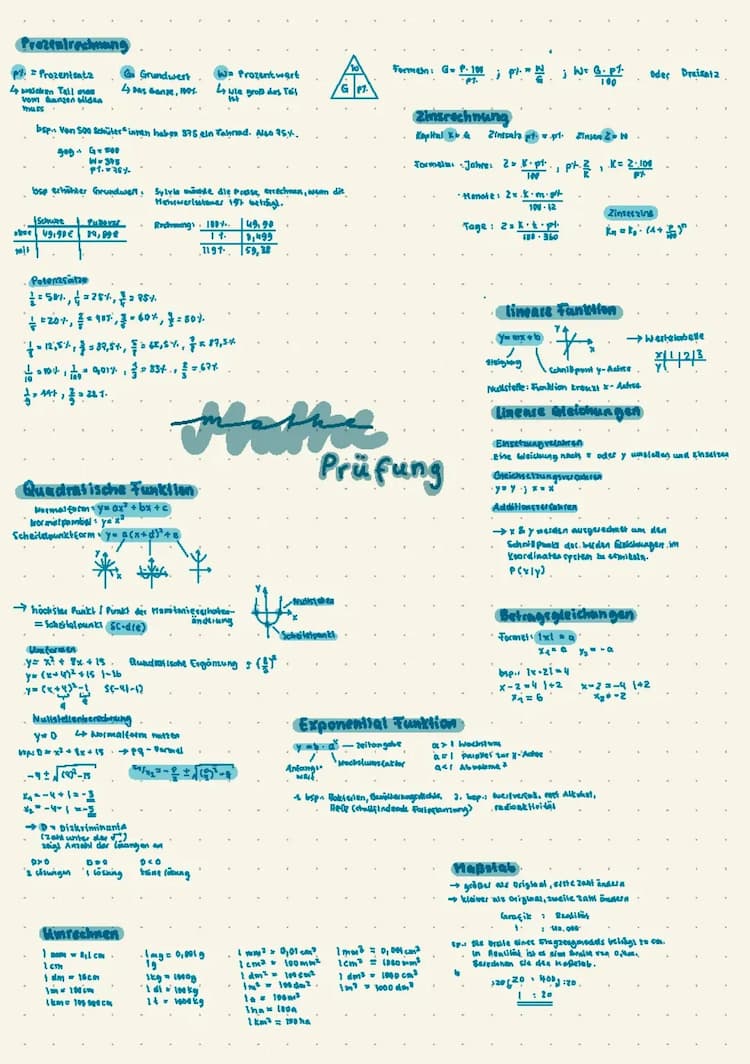 Prozentrechnung
p% = Prozentsatz
↳ welchen Teil man vom Ganzen bilden muss
G = Grundwert
↳ Das Ganze, 100%
W = Prozentwert
↳ wie groß das Teil ist
G p%
Formeln: G = P·100 / p% ; p% = W / G ; W = G·p% / 100 oder Dreisatz
bsp.: Von 500 Schüler*innen haben 375 ein Fahrrad. Also 75%.
geg.: G = 500
W = 375
p% = 75%
bsp erhöhter Grundwert: Sylvia möchte die Preise errechnen, wenn die
Mehrwertsteuer 19% beträgt.
Schuhe Pullover
ohne 49,90€
mit
Rechnung: 100% 49,90
1% 0,499
119% 59,38
Zinsrechnung
Kapital K = G Zinssatz p% = p% Zinsen Z = W
Formeln: Jahre: Z = K·p% / 100 , p% Z / K , K = Z·100 / p%
Monate: Z = K·m·p% / 100·12
Tage: Z = K·t·p% / 100·360
Zinseszins
Kn = K0 · (1 + p/100)^n
Potenzsätze
1/2 = 50%, 1/4 = 25%, 3/4 = 75%
1/5 = 20%, 2/5 = 40%, 3/5 = 60%, 4/5 = 80%
1/8 = 12,5%, 3/8 = 37,5%, 5/8 = 62,5%, 7/8 = 87,5%
1/10 = 10%, 1/100 = 0,01%, = 33%, 2/3 = 67%
1/9 = 11%, 2/9 = 22%
lineare Funktion
y = mx + b
Steigung
Schnittpunkt y-Achse
→ Wertetabelle
x 1 2 3
y
Nullstelle: Funktion kreuzt x-Achse
Mathe
mathe
Prüfung
lineare Gleichungen
Einsetzungsverfahren
Eine Gleichung nach x oder y umstellen und einsetzen
Gleichsetzungsverfahren
y = y ; x = x
Additionsverfahren
→ x & y werden ausgerechnet um den
Schnittpunkt der beiden Gleichungen im
Koordinatensystem zu ermitteln.
P(x|y)
Quadratische Funktion
Normalform: y = ax² + bx + c
Normalparabel: y = x²
Scheitelpunktform: y = a(x+d)² + e
→ höchster Punkt / Punkt der
änderung
= Scheitelpunkt S(-d|e)
Nullstellen
Scheitelpunkt
Umformen
y = x² + 8x + 15 Quadratische Ergänzung: (b/2)²
y = (x+4)² + 15 |-16
y = (x+4)² - 1 S(-4|-1)
Nullstellenberechnung
y = 0 ↳ Normalform nutzen
0 = x² + 8x + 15 → PQ-Formel
-4 ± √(4)² - 15
x1/x2 = -p/2 ± √(p/2)² - q
x1 = -4 + 1 = -3
x2 = -4 - 1 = -5
→ D = Diskriminante
(Zahl unter der √)
zeigt Anzahl der Lösungen an
D > 0 D = 0 D < 0
2 Lösungen 1 Lösung keine Lösung
Betragsgleichungen
Formel: |x| = a
x1 = a x2 = -a
bsp.: |x-2| = 4
x-2 = 4 |+2 x-2 = -4 |+2
x1 = 6 x2 = -2
Exponential Funktion
y = b · aˣ — Zeitangabe
Anfangswert
Wachstumsfaktor
a > 1 Wachstum
a = 1 Parallel zur x-Achse
a < 1 Abnahme
1. bsp.: Bakterien,
2. bsp.: Wertverlust, Alkohol,
radioaktivität
Maßstab
→ größer als Original, erste Zahl ändern
→ kleiner als Original, zweite Zahl ändern
Grafik : Realität
1 : 40.000
bsp.: die Breite eines Flugzeugmodells beträgt 20 cm.
in Realität ist es eine Breite von
Berechnen Sie den Maßstab.
:20 ( 20 : 400 ) :20
1 : 20
Umrechnen
1 mm = 0,1 cm
1 cm
1 dm = 10 cm
1 m = 100 cm
1 km = 100 000 cm
1 mg = 0,001 g
1 g
1 kg = 1000 g
1 dt = 100 kg
1 t = 1000 kg
1 mm² = 0,01 cm²
1 cm² = 100 mm²
1 dm² = 100 cm²
1 m² = 100 dm²
1 a = 100 m²
1 ha = 100 a
1 km² = 100 ha
1 mm³ = 0,001 cm³
1 cm³ = 1000 mm³
1 dm³ = 1000 cm³
1 m³ = 1000 dm³